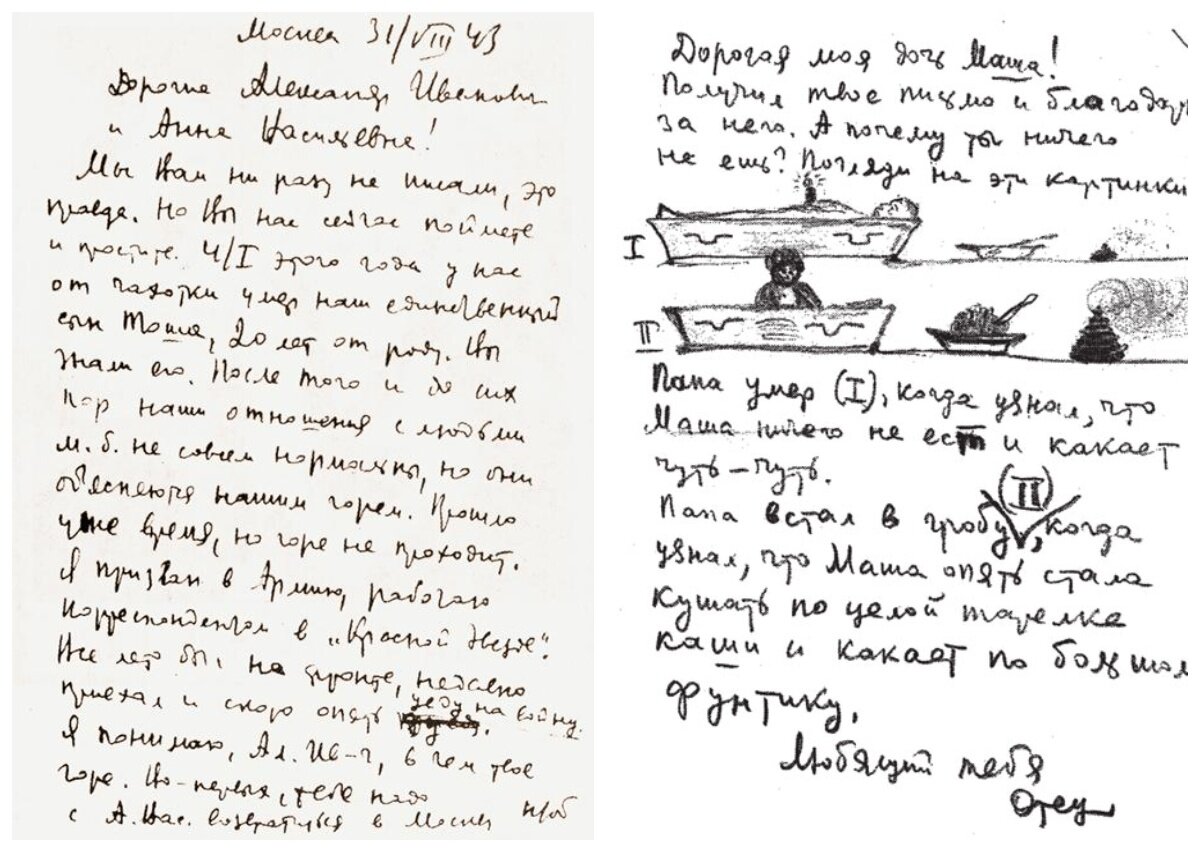 Москва 31/VIII 43
Дорогие Александр Иванович
и Анна Васильевна!
Мы Вам ни разу не писали, это
правда. Но Вы нас сейчас поймете
и простите. 4/I этого года у нас
от чахотки умер наш единственный
сын Тоша, 20 лет от роду. Вы
знали его. После того и до сих
пор наши отношения с людьми
м. б. не совсем нормальны, но они
объясняются нашим горем. Прошло
уже время, но горе не проходит.
Я призван в Армию, работаю
корреспондентом в „Красной Звезде".
Все лето был на фронте, недавно
приехал и скоро опять уеду на войну.
Я понимаю, Ал. Ив-ч, в чем твое
горе. Во-первых, тебе надо
с А. Вас. возвратиться в Москву чтоб
Дорогая моя дочь Маша!
Получил твое письмо и благодарю
за него. А почему ты ничего
не ешь? Погляди на эти картинки
I
II
Папа умер (I), когда узнал, что
Маша ничего не ест и какает
чуть-чуть.
Папа встал в гробу (II), когда
узнал, что Маша опять стала
кушать по целой тарелке
каши и какает по большому
фунтику.
Любящий тебя
Отец